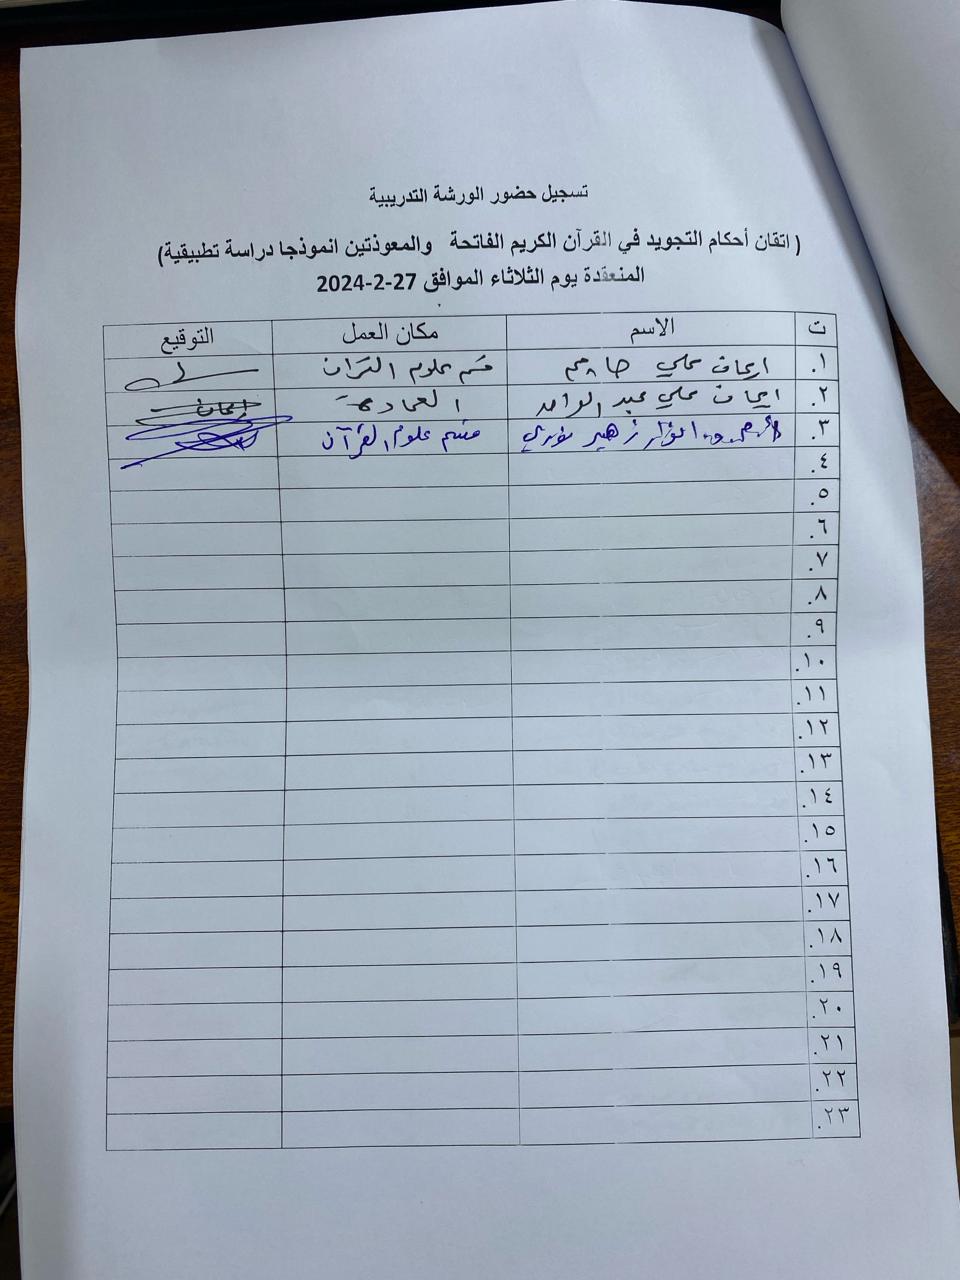 تسجيل حضور الورشة التدريبية
( اتقان أحكام التجويد في القرآن الكريم الفاتحة والمعوذتين انموذجا دراسة تطبيقية)
المنعقدة يوم الثلاثاء الموافق 27-2-2024
ت الاسم مكان العمل التوقيع
.١ علي قسم علوم القران
.٢ ايمان علي عبد الواحد العمادة ايمان
.٣ انوار زهير نوري قسم علوم القرآن
.٤
.٥
.٦
.٧
.٨
.٩
.١٠
.١١
.١٢
.١٣
.١٤
.١٥
.١٦
.١٧
.١٨
.١٩
.٢٠
.٢١
.٢٢
.٢٣